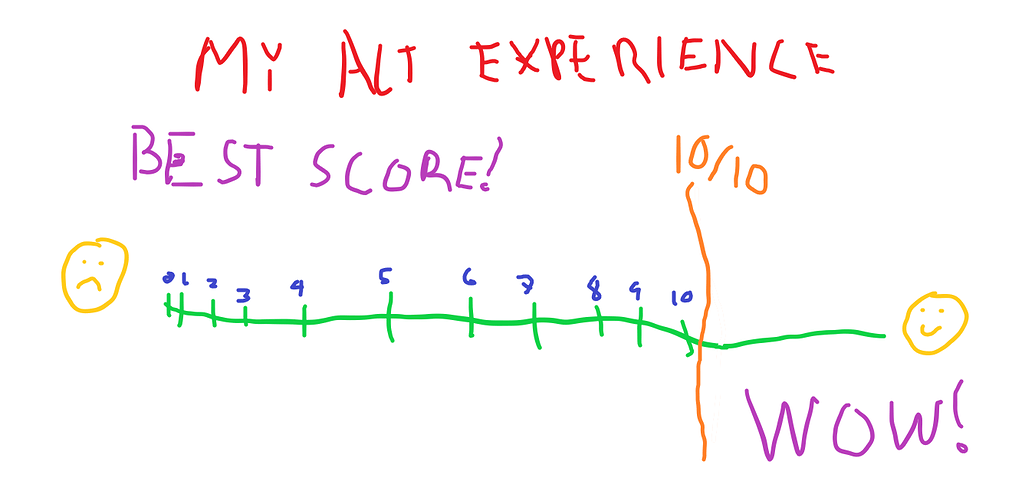 MY ALT EXPERIENCE
BEST SCORE!
10/10
0 1 2 3 4 5 6 7 8 9 10
WOW!